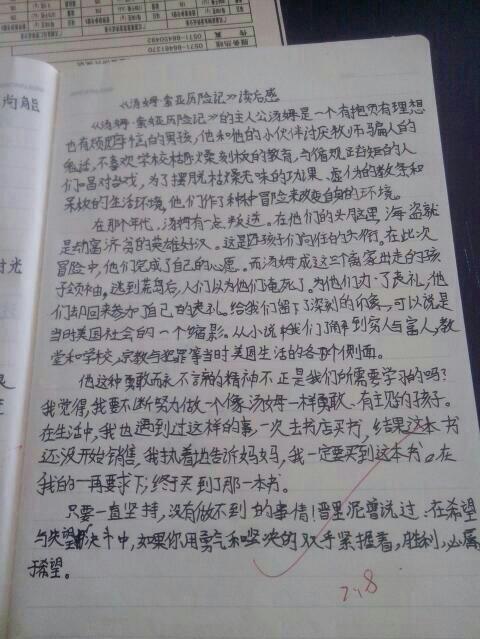 传真 0571-86450492
服务热线 0571-86461270
《汤姆·索亚历险记》读后感
《汤姆·索亚历险记》的主人公汤姆是一个有抱负有理想
也有烦恼的男孩,他和他的小伙伴讨厌牧师骗人的
鬼话,不喜欢学校枯燥刻板的教育,与循规正当的人
们唱对台戏,为了摆脱枯燥无味的功课、虚伪的教条和
呆板的生活环境,他们作了种种冒险来改变自身的环境。
在那个年代,汤姆有一点叛逆。在他们的头脑里,海盗就
是劫富济贫的英雄好汉。这是孩子们向往的。在此次
冒险中,他们完成了自己的心愿。而汤姆成这三个离家出走的孩
子领袖,逃到荒岛后,人们以为他们淹死了。为他们办了丧礼,他
们却回来参加了自己的丧礼。给我们留下了深刻的印象,可以说是
当时美国社会的一个缩影。从小说中我们了解到穷人与富人,教
堂和学校,宗教与犯罪等当时美国生活的各个侧面。
他这种勇敢而永不言弃的精神不正是我们所需要学习的吗?
我觉得,我要不断努力做一个像汤姆一样勇敢、有主见的孩子。
在生活中,我也遇到过这样的事,一次去书店买书,结果这本书
还没开始销售,我执着地告诉妈妈,我一定要买到这本书。在
我的一再要求下,终于买到了那一本书。
只要一直坚持,没有做不到的事情!普里尼曾说过:在希望
与失望决斗中,如果你用勇气和坚决的双手紧握着,胜利,必属
于希望。
7.8
尚能
时光